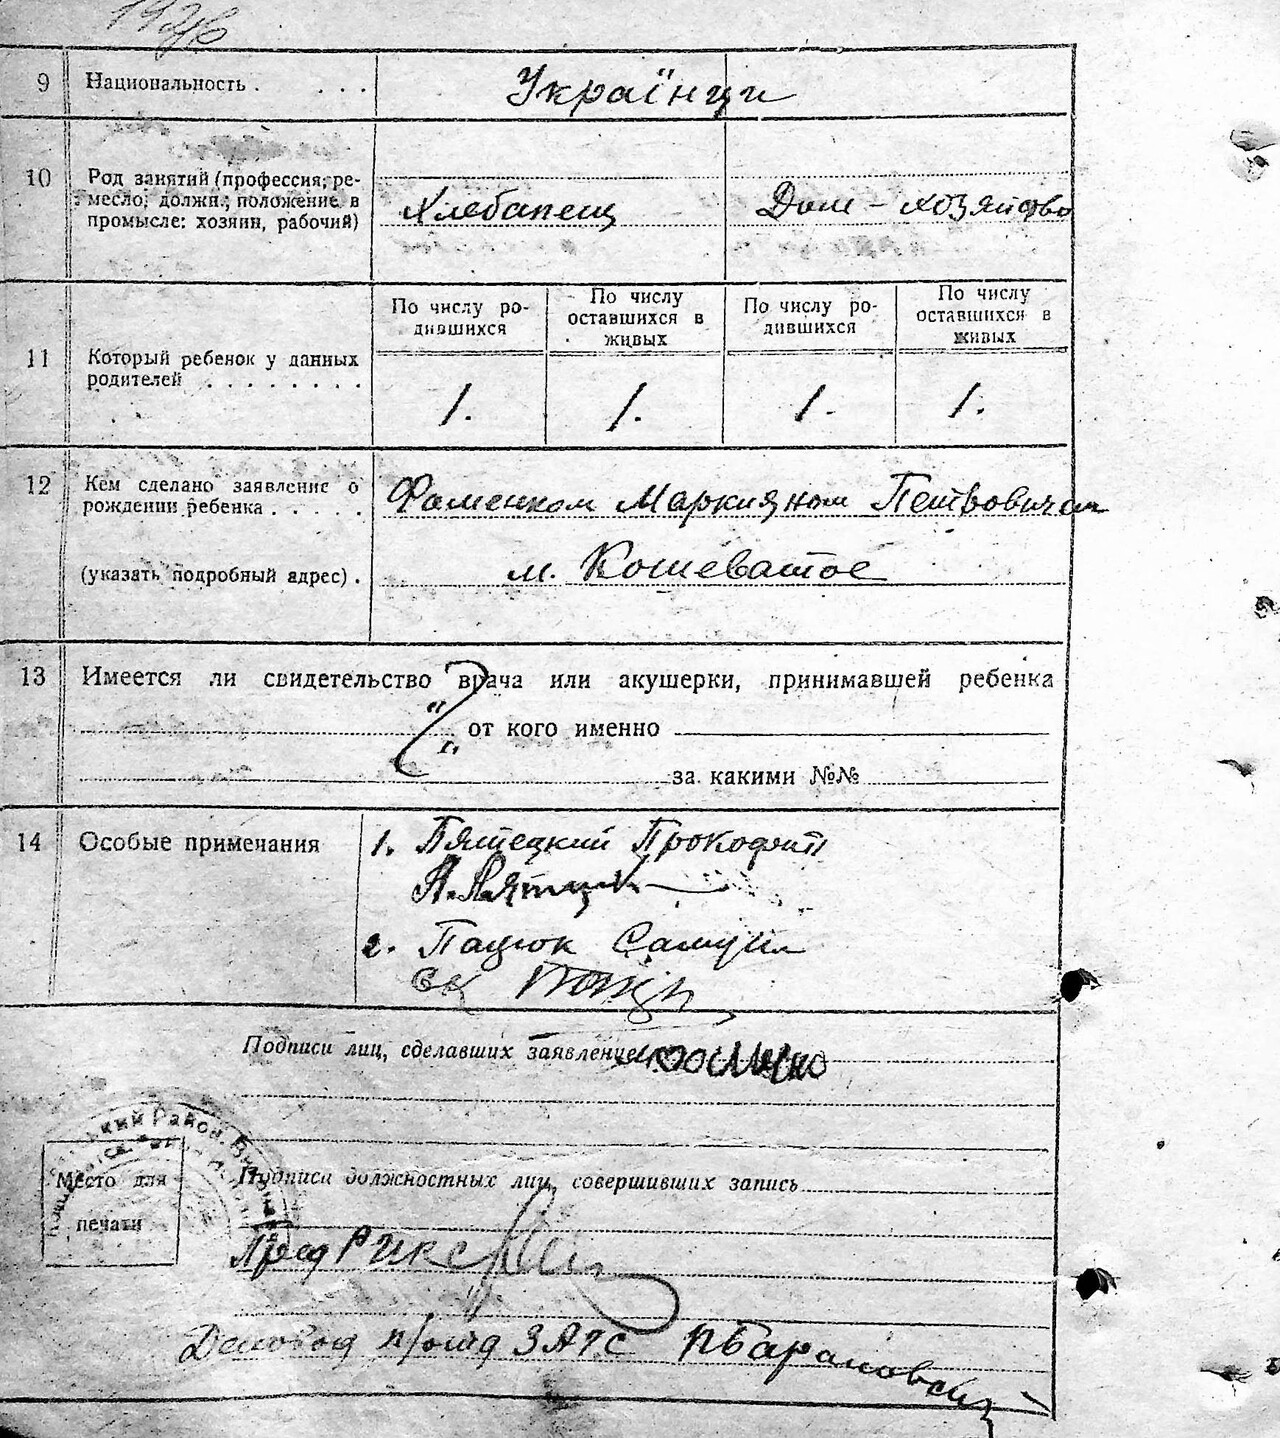 9 Национальность . . . . Українци
10 Род занятий (профессия, ре-
месло, должн., положение в
промысле: хозяин, рабочий)
Хлебапець Дом-хозяйство
По числу ро-
дившихся
По числу
оставшихся в
живых
По числу ро-
дившихся
По числу
оставшихся в
живых
11 Который ребенок у данных
родителей . . . . . . . .
1. 1. 1. 1.
12 Кем сделано заявление о
рождении ребенка . . . . .
Фаменком Маркияном Петровичем
(указать подробный адрес) . м. Кошеватое
13 Имеется ли свидетельство врача или акушерки, принимавшей ребенка
" г. от кого именно
за какими №№
14 Особые примечания
1. Пятецкий Прокофий
2. Пацюк Самуил
Подписи лиц, сделавших заявление
Место для
печати
Подписи должностных лиц, совершивших запись
Пред РИКе
Деловод п/отд ЗАГС П Барановский